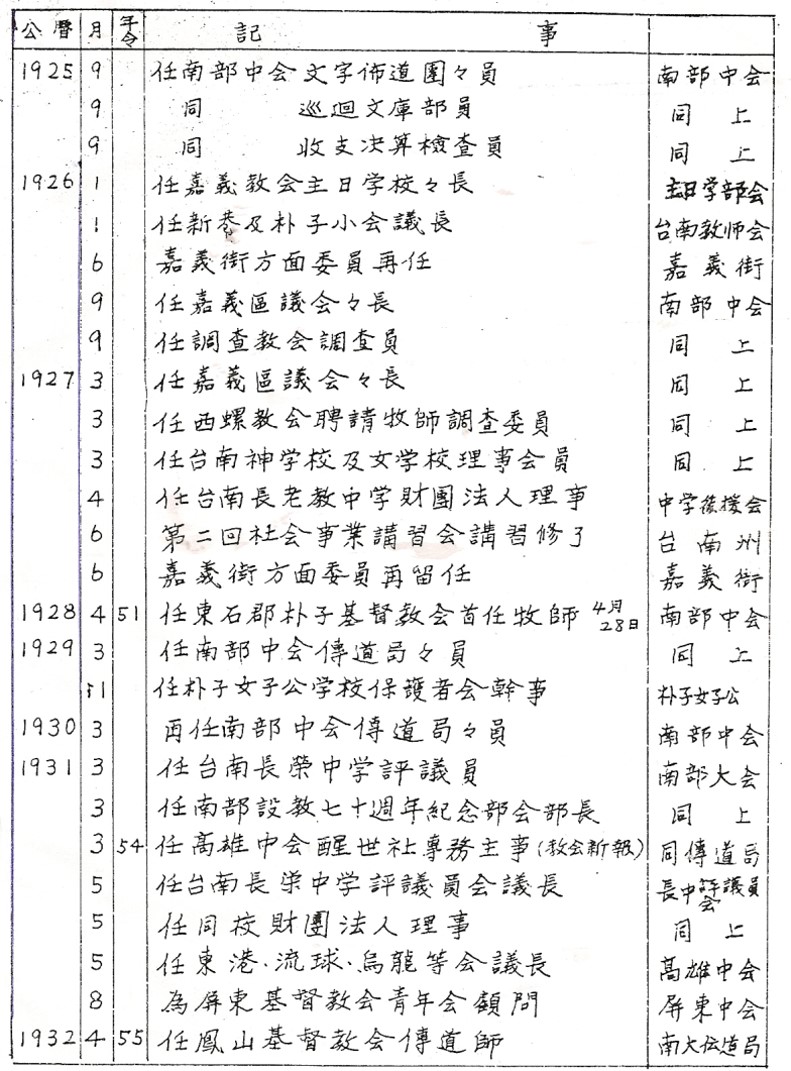 公曆 月 年令 記 事
1925 9 任南部中会文字佈道團々員 南部中会
9 同 巡迴文庫部員 同 上
9 同 收支決算檢查員 同 上
1926 1 任嘉義教会主日学校々長 主日学部会
1 任新巷及朴子小会議長 台南教师会
6 嘉義街方面委員再任 嘉義街
9 任嘉義區議会々長 南部中会
9 任調查教会調查員 同 上
1927 3 任嘉義區議会々長 同 上
3 任西螺教会聘請牧師調查委員 同 上
3 任台南神学校及女学校理事会員 同 上
4 任台南長老教中学財團法人理事 中学後援会
6 第二回社会事業講習会講習修了 台南州
6 嘉義街方面委員再留任 嘉義街
1928 4 51 任東石郡朴子基督教会首任牧師 4月28日 南部中会
1929 3 任南部中会傳道局々員 同 上
11 任朴子女子公学校保護者会幹事 朴子女子公
1930 3 再任南部中会傳道局々員 南部中会
1931 3 任台南長榮中学評議員 南部大会
3 任南部設教七十週年紀念部会部長 同 上
3 54 任高雄中会醒世社專務主事(教会新報) 同傳道局
5 任台南長栄中学評議員会議長 長中評議員会
5 任同校財團法人理事 同 上
5 任東港·流球·烏龍等会議長 高雄中会
8 為屏東基督教会青年会顧問 屏東中会
1932 4 55 任鳳山基督教会傳道師 南大伝道局